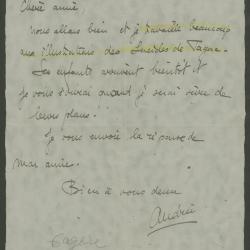 Chère amie
Nous allons bien et je travaille beaucoup
aux illustrations des de Tagore.
Les enfants arrivent bientôt et
je vous écrirai quand je serai sûre de
leurs plans.
Je vous envoie la réponse de
mon amie.
Bien à vous deux
Andrée
Tagore